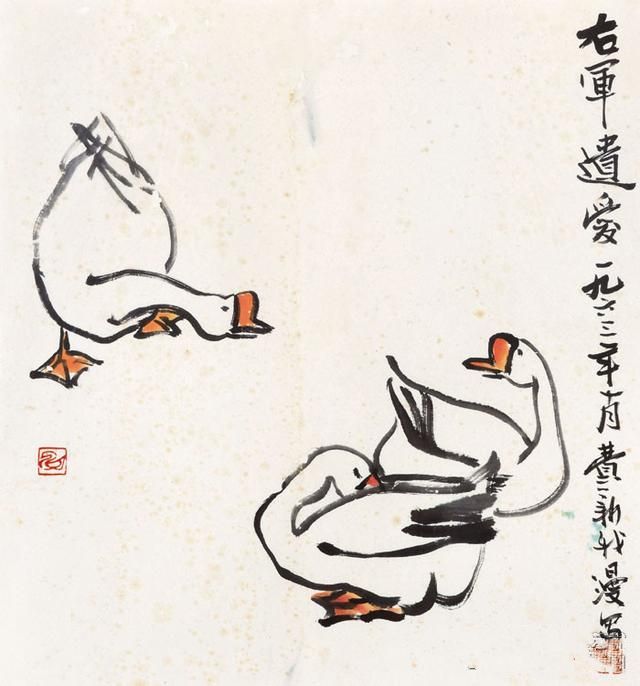 右軍遺愛一九六三年十月費新我漫写